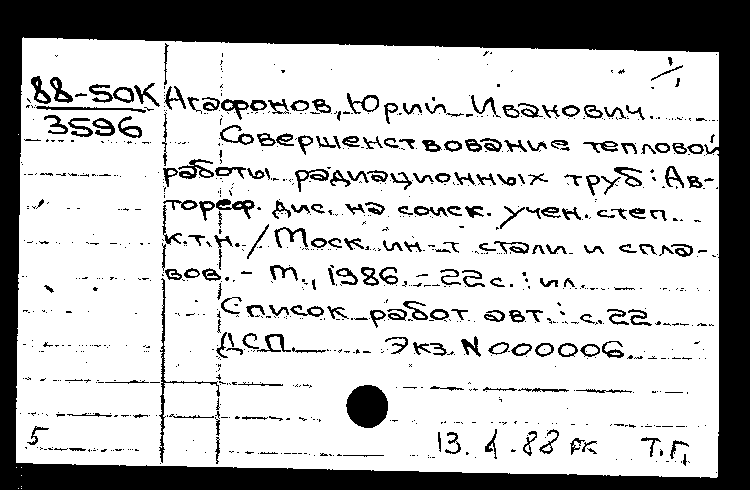 1/1
88-50К Агафонов, Юрий Иванович.
3596
Совершенствование тепловой
работы радиационных труб : Ав-
тореф. дис. на соиск. учен. степ.
к.т.н. / Моск. ин-т стали и спла-
вов. - М., 1986. - 22 с. : ил.
Список работ авт. : с. 22.
ДСП. Экз. N 000006.
5 13. 4. 88 РК Т.Г.